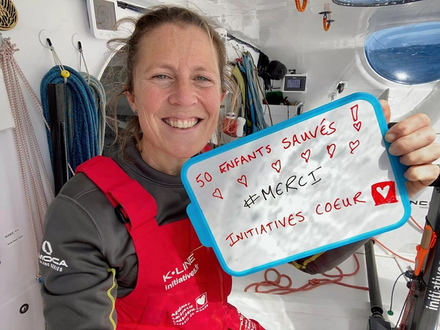 50 ENFANTS SAUVÉS !
#MERCI
INITIATIVES COEUR
MOCA
K-LINE
Initiatives